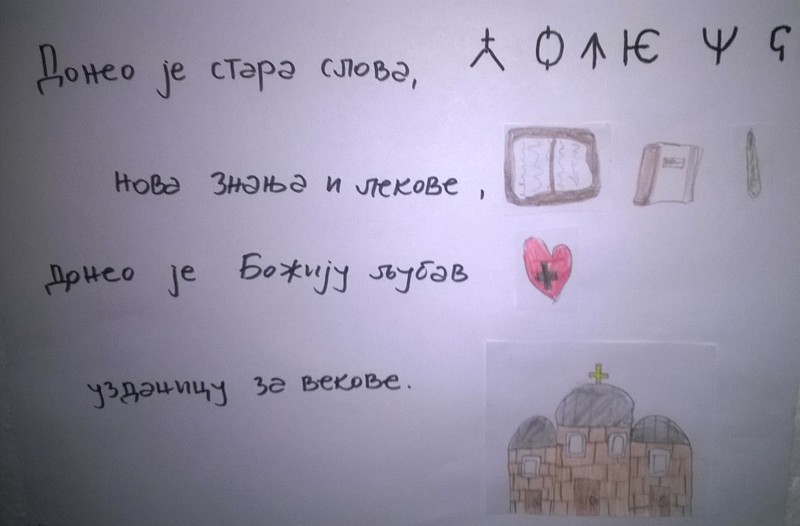 Донео је стара слова, Ѧ Ф ↑ Ѥ Ѱ Ҁ
нова знања и лекове,
донео је Божију љубав
узданицу за векове.